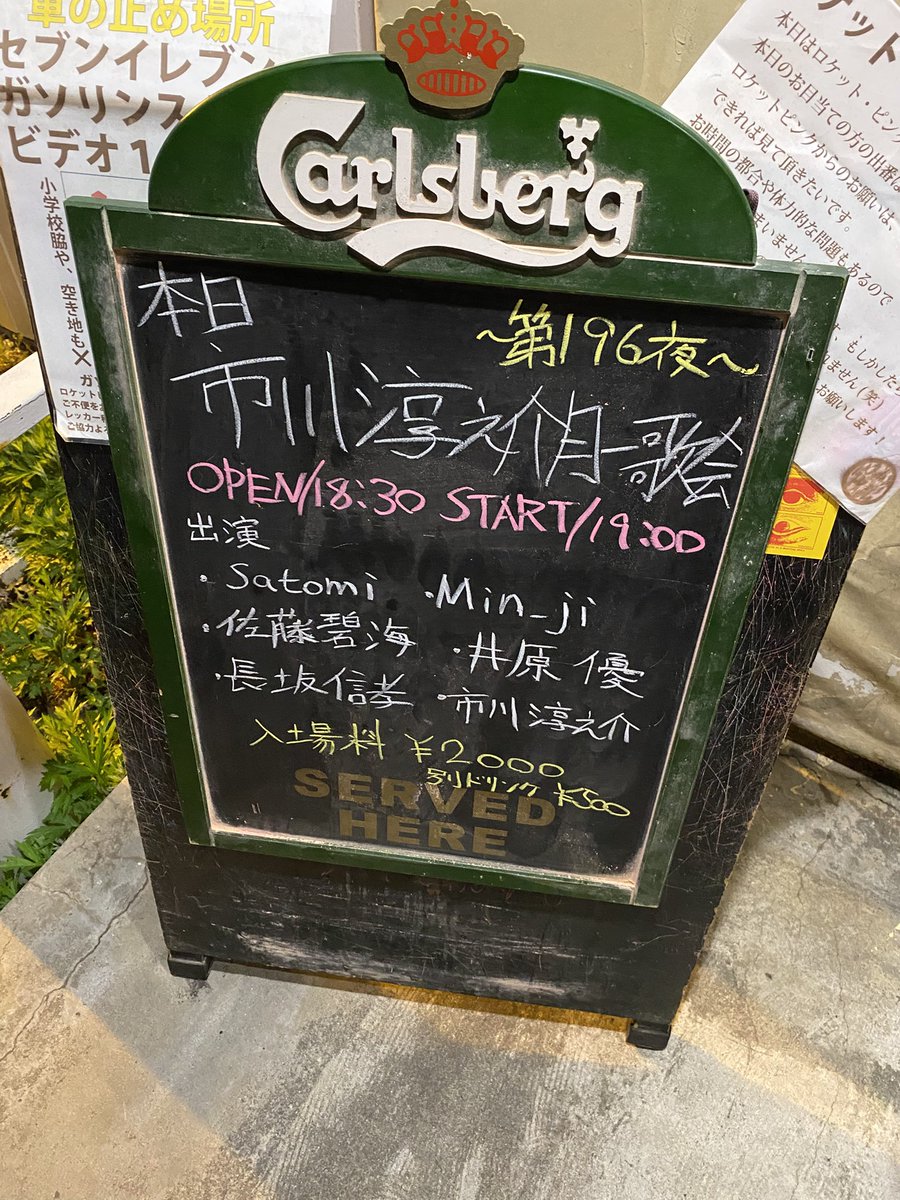 Carlsberg
本日
~第196夜~
市川淳之介月一歌会
OPEN/18:30 START/19:00
出演
・Satomi ・Min_ji
・佐藤碧海 ・井原 優
・長坂信孝 ・市川淳之介
入場料 ¥2000
別ドリンク ¥500
SERVED
HERE
車の止め場所
セブンイレブン
ガソリンス
ビデオ1
小学校脇や、空き地も×
ロケット
ご不便を
レッカー
ご協力よ
ケット
本日はロケット・ピン
本日のお目当ての方の出番
ロケットピンクからのお願いは、
できれば見て頂きたいです。
お時間の都合や体力的な問題もあるので
まいません
もしかした
ません(笑)
お願いします!